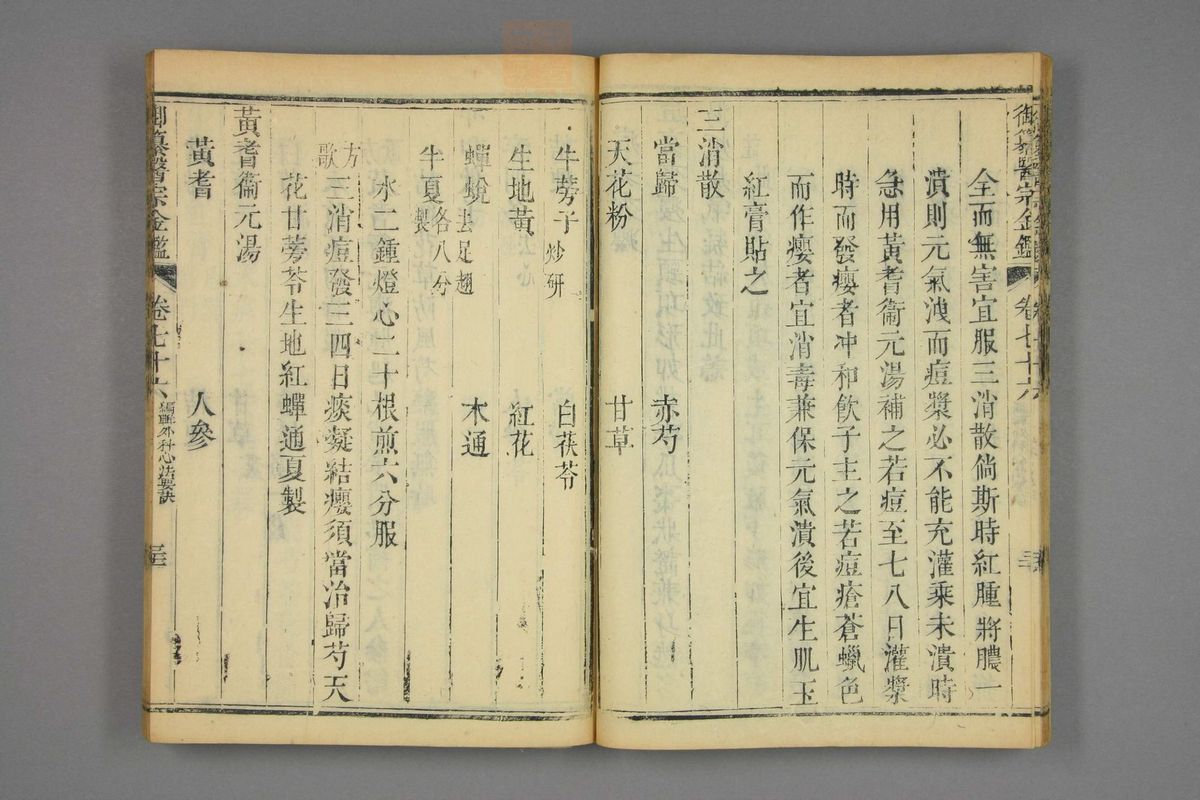 御纂醫宗金鑑 卷七十六
全而無害宜服三消散倘斯時紅腫將膿一
潰則元氣洩而痘漿必不能充灌乘未潰時
急用黃耆衞元湯補之若痘至七八日灌漿
時而發癭者冲和飲子主之若痘瘡蒼蠟色
而作癭者宜消毒兼保元氣潰後宜生肌玉
紅膏貼之
三消散
當歸 赤芍
天花粉 甘草
牛蒡子炒研 白茯苓
生地黃 紅花
蟬蛻去足翅 木通
半夏製各八分
水二鍾燈心二十根煎六分服
方歌 三消痘發三四日痰凝結癭須當治歸芍天
花甘蒡苓生地紅蟬通夏製
黃耆衞元湯
黃耆 人參
御纂醫宗金鑑 卷七十六 編輯外科心法要訣 三